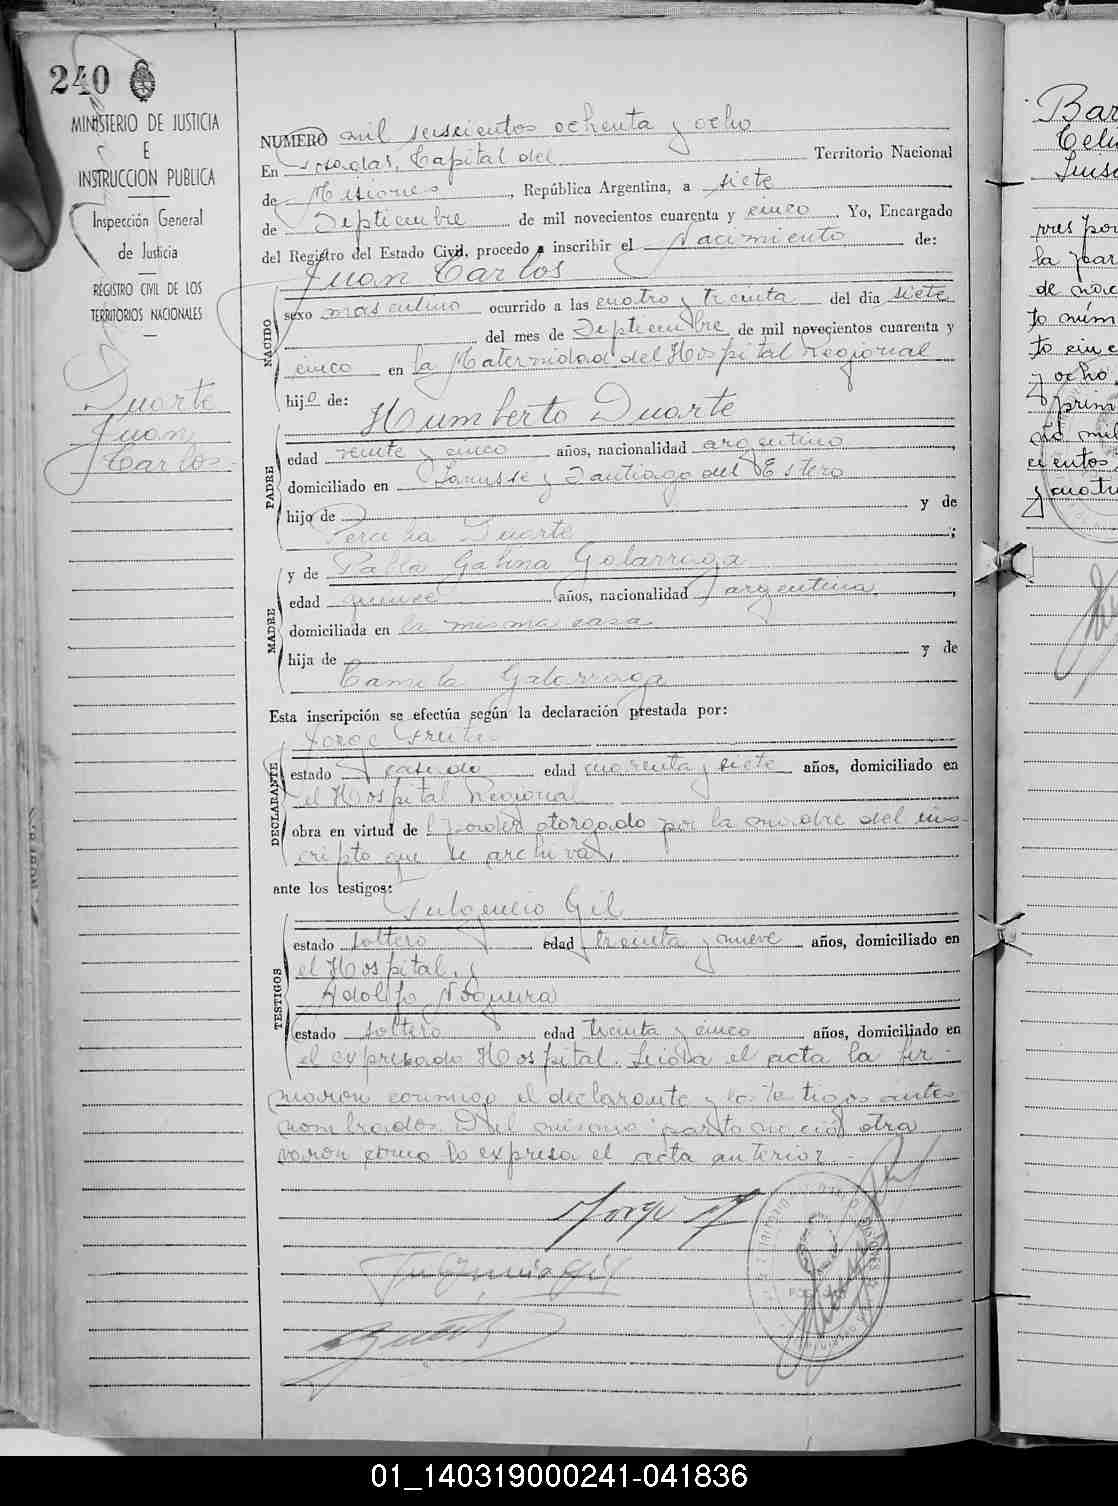 240
MINISTERIO DE JUSTICIA
E
INSTRUCCION PUBLICA
Inspección General
de Justicia
REGISTRO CIVIL DE LOS
TERRITORIOS NACIONALES
Duarte
Juan
Carlos
NUMERO mil seiscientos ochenta y ocho
En Posadas, Capital del Territorio Nacional
de Misiones, República Argentina, a siete
de Septiembre de mil novecientos cuarenta y cinco. Yo, Encargado
del Registro del Estado Civil, procedo a inscribir el Nacimiento de:
Juan Carlos
NACIDO
sexo masculino ocurrido a las cuatro y treinta del dia siete
del mes de Septiembre de mil novecientos cuarenta y
cinco en la Maternidad del Hospital regional
hijo de:
Humberto Duarte
PADRE
edad veinte y cinco años, nacionalidad argentino,
domiciliado en Lanusse y Santiago del Estero
hijo de y de
Duarte;
y de Galarraga
MADRE
edad quince años, nacionalidad argentina,
domiciliada en la misma casa
hija de y de
Camila Galarraga
Esta inscripción se efectúa según la declaración prestada por:
Jorge
DECLARANTE
estado casado edad cuarenta y siete años, domiciliado en
el Hospital regional
obra en virtud del poder otorgado por la madre del ins-
cripto que se archiva,
ante los testigos:
Fulgencio Gil
TESTIGOS
estado soltero edad treinta y nueve años, domiciliado en
el Hospital, y
Adolfo Nogueira
estado soltero edad treinta y cinco años, domiciliado en
el expresado Hospital. Leida el acta la fir-
maron conmigo el declarante y los testigos antes
nombrados. Del mismo parto nació otro
varon como lo expresa el acta anterior.-
01_140319000241-041836